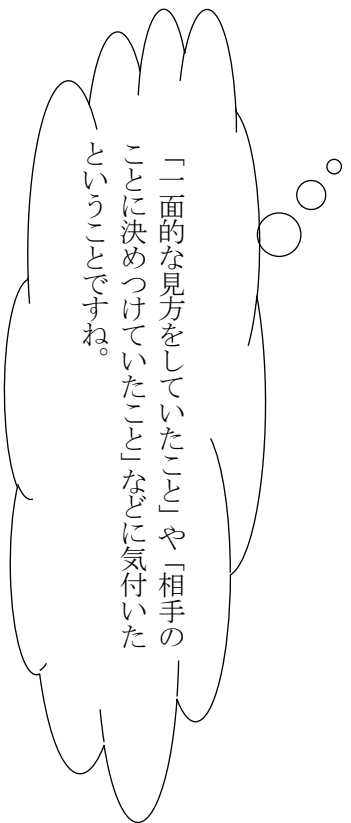 「一面的な見方をしていたこと」や「相手の
ことに決めつけていたこと」などに気付いた
ということですね。